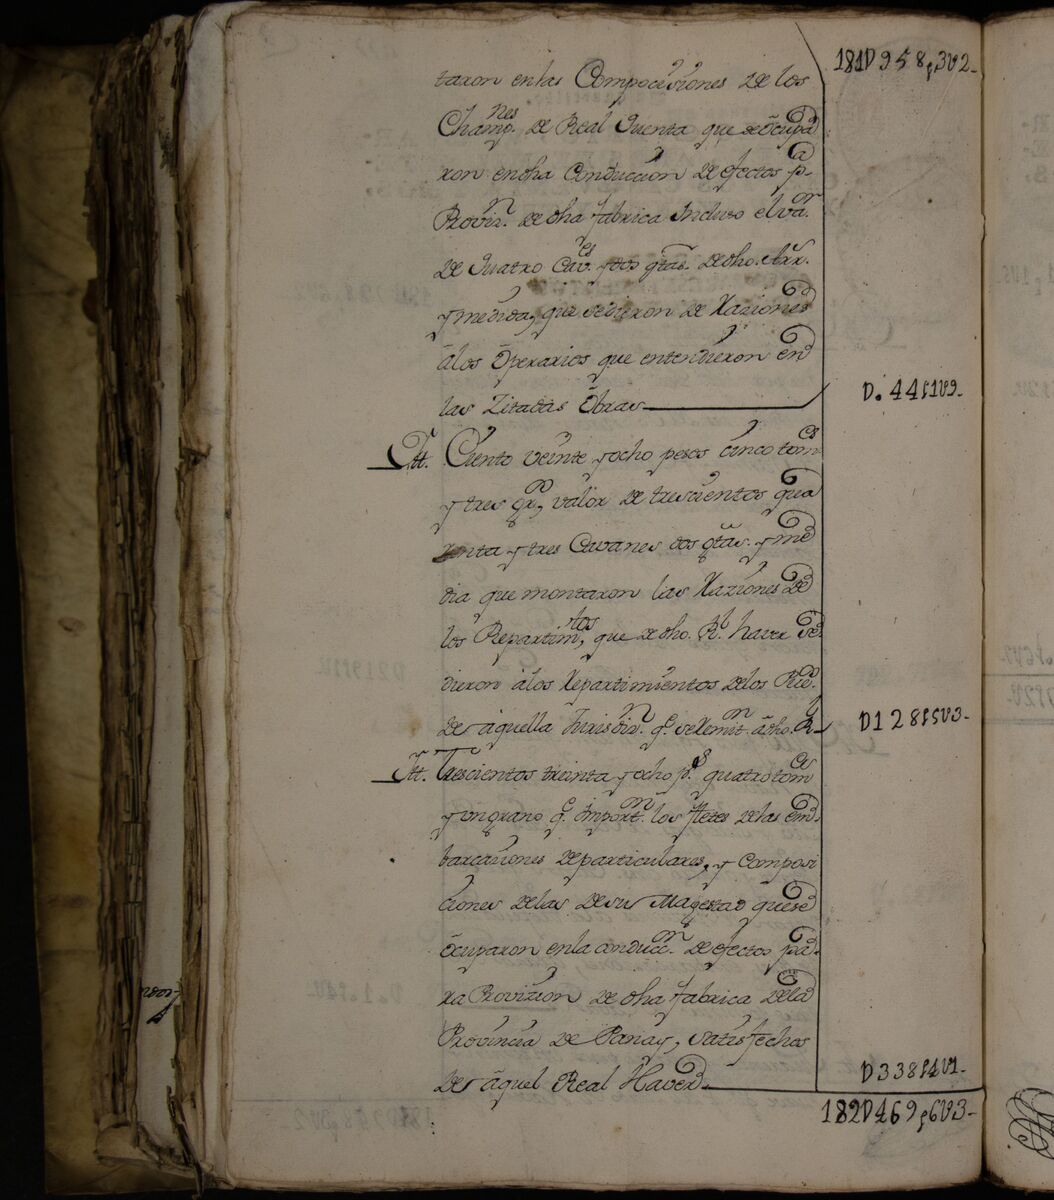 181D958p,3U2-
taron enlas Compocesiones de los
Champ.nes de Real Quenta que se ōcupa
ron en dha Conduccion de efectos p.a
Provis.n de dha fabrica Incluso el va.or
de Quatro Cav.es y dos gtas. de dho. Arr.
y media, que se dieron de Raziones
â los Ōperarios que entendieron en
las Zitadas Ōbras
D.,,44p1U9-
Ytt. Ciento veinte y ocho pesos cinco tom.es
y tres gr.o, valor de trescientos qua
renta y tres Cavanes dos gtas. y me
dia que montaron las Raziones de
los Repartim.tos, que de dho. R.l haver se
dieron â los Repartimientos de los Pue.
de âquella Jurisdin.n q.e se Remit.n âdho. R.
D128p5U3-
Ytt. Trescientos treinta y ocho p.s quatro tom.es
y un grano q.e import.n los fletes de las em-
barcaciones de particulares, y Composi
ciones de las de su Magestad que se
ōcuparon en la conducc.n de efectos pa-
ra Provizion de dha fabrica de la
Provincia de Panay, satisfechos
de âquel Real Haver
D338p4U1-
182D469p6U3-